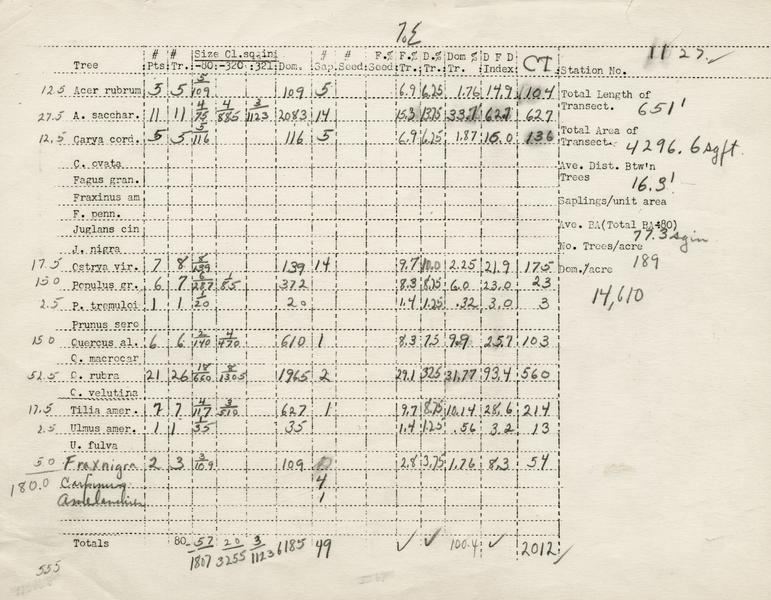 T.E
11 27
# # Size Cl.sq.in. # # F.% F.% D.% Dom % D F D CT
Tree Pts. Tr. -80 -320 321 Dom. Sap. Seed. Seed. Tr. Tr. Tr. Index
Station No.
12.5 Acer rubrum 5 5 5/109 109 5 6.9 6.25 1.76 14.9 104
Total Length of Transect. 651'
27.5 A. sacchar. 11 11 4/75 4/885 3/1123 2083 14 15.3 13.75 33.7 62.7 627
Total Area of Transect. 4296.6 sqft.
12.5 Carya cord. 5 5 5/116 116 5 6.9 6.25 1.87 15.0 136
C. ovata
Ave. Dist. Btw'n Trees 16.3'
Fagus gran.
Fraxinus am
Saplings/unit area
F. penn.
Juglans cin
Ave. BA(Total BA÷80) 77.3 sqin
J. nigra
No. Trees/acre 189
17.5 Ostrya vir. 7 8 8/139 139 14 9.7 10.0 2.25 21.9 175
Dom./acre 14,610
15.0 Populus gr. 6 7 6/287 1/85 372 8.3 8.75 6.0 23.0 23
2.5 P. tremuloi 1 1 1/20 20 1.4 1.25 .32 3.0 3
Prunus sero
15.0 Quercus al. 6 6 2/140 4/470 610 1 8.3 7.5 9.9 25.7 103
Q. macrocar
52.5 Q. rubra 21 26 18/660 8/1305 1965 2 29.1 32.5 31.77 93.4 560
Q. velutina
17.5 Tilia amer. 7 7 4/117 3/510 627 1 9.7 8.75 10.14 28.6 214
2.5 Ulmus amer. 1 1 1/35 35 1.4 1.25 .56 3.2 13
U. fulva
5.0 Frax nigra 2 3 3/109 109 2.8 3.75 1.76 8.3 54
180.0 Carpinus 4
Amelanchier 1
Totals 80 57/1807 20/3255 3/1123 6185 49 ✓ ✓ 100.4 ✓ 2012 ✓
555